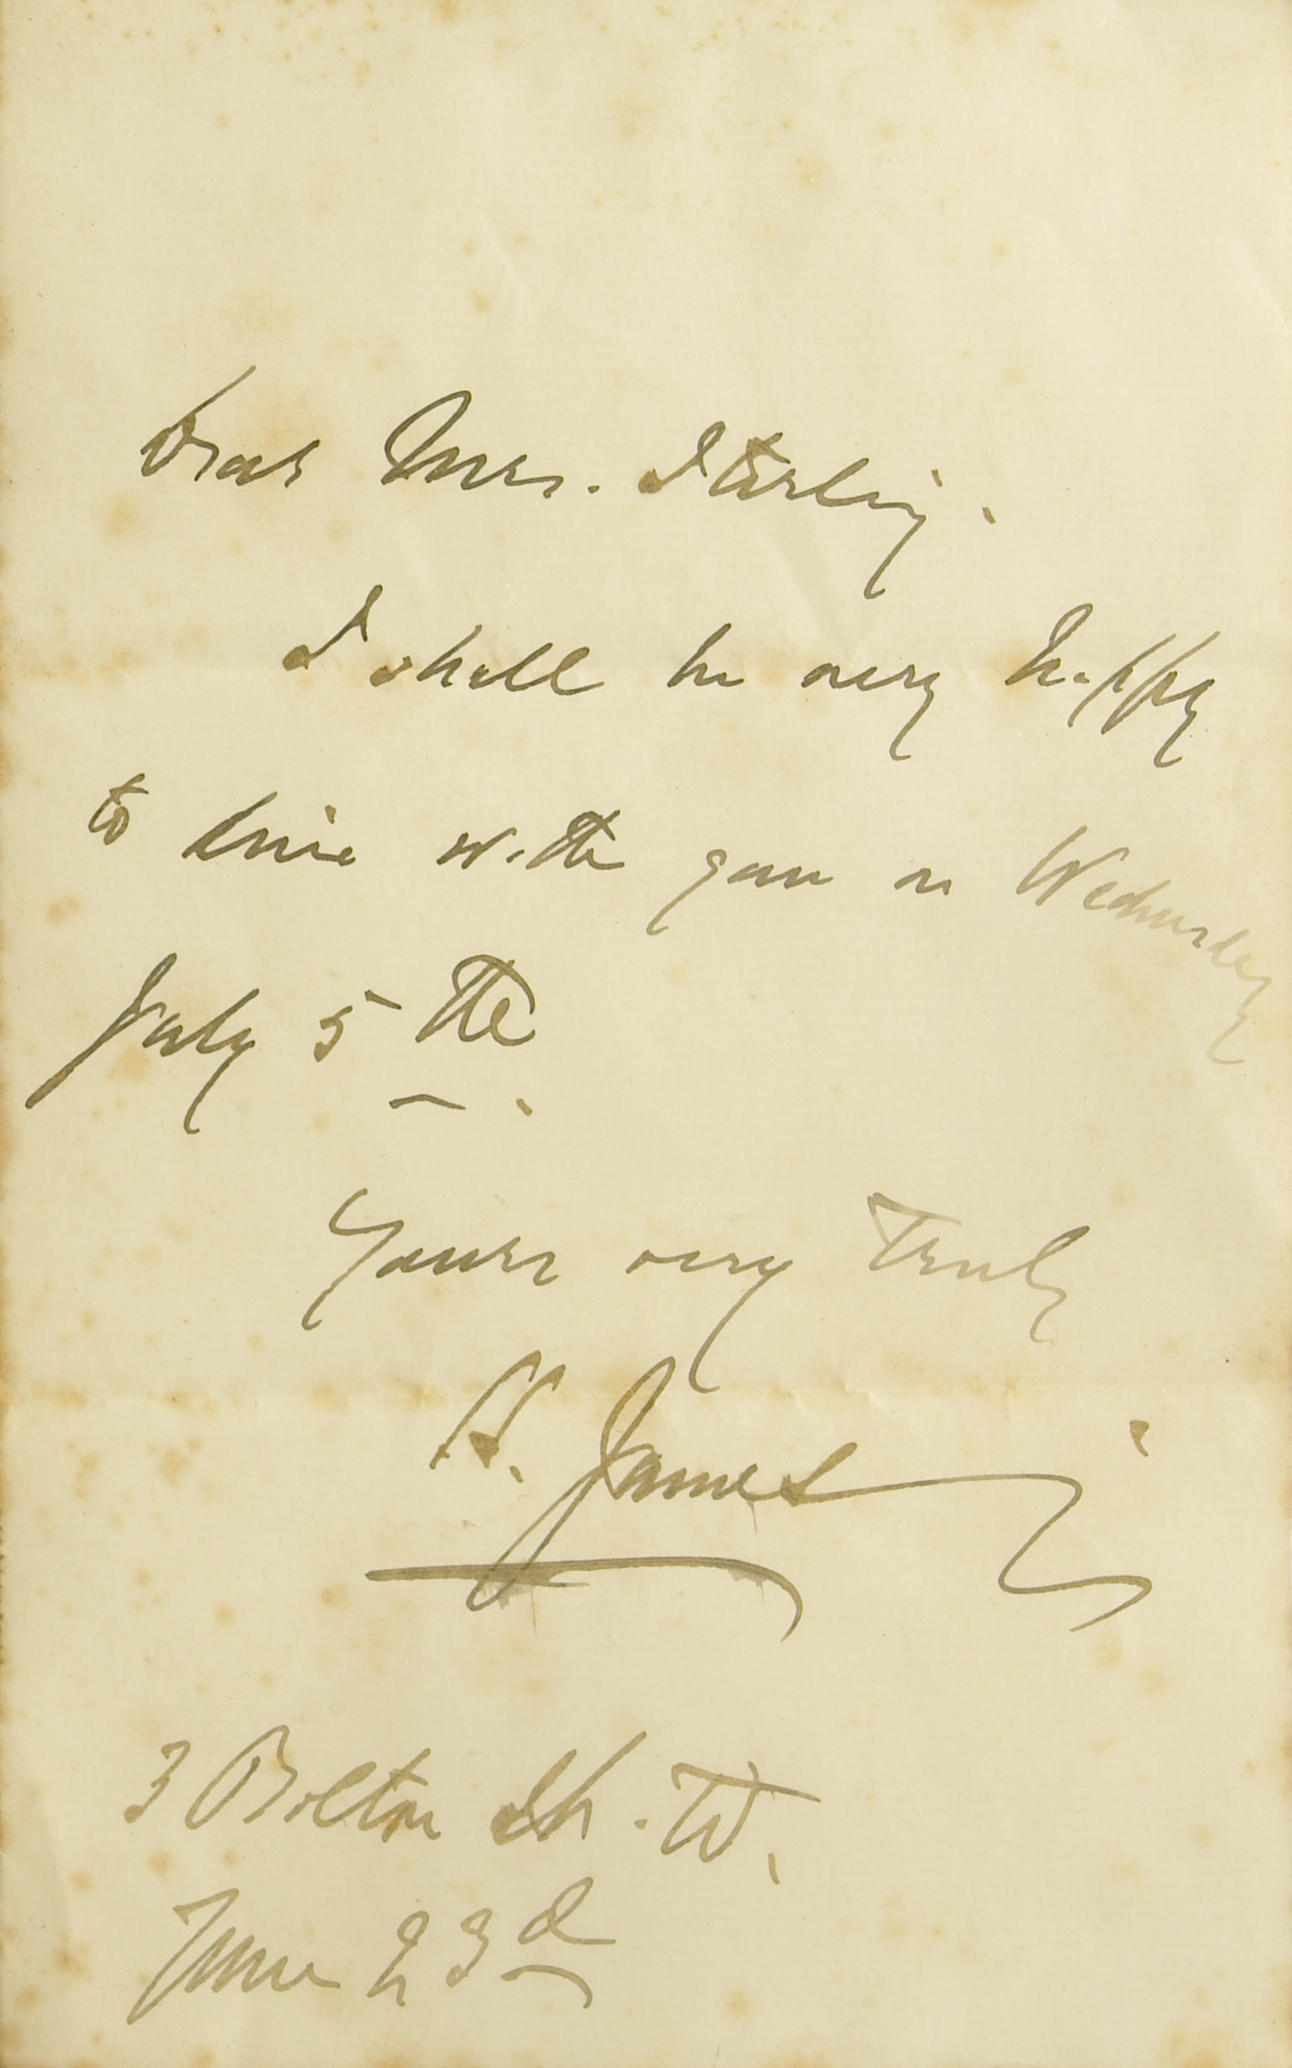 Dear Mrs. Stirling.
I shall be very happy
to dine with you on Wednesday
July 5th.
Yours very truly
H. James
3 Bolton St. W.
June 23d